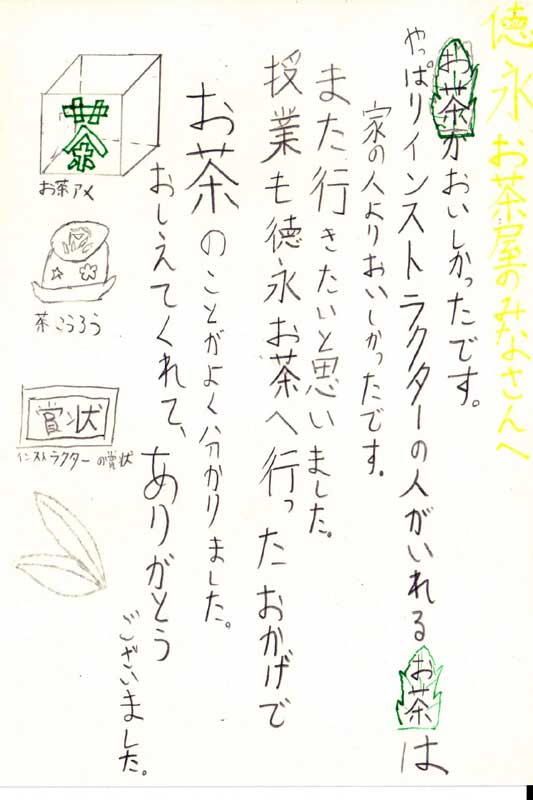 徳永お茶屋のみなさんへ
お茶がおいしかったです。
やっぱりインストラクターの人がいれるお茶は
家の人よりおいしかったです。
また行きたいと思いました。
授業も徳永お茶へ行ったおかげで
お茶のことがよく分かりました。
おしえてくれて、ありがとう
ございました。
茶
お茶アメ
茶こうろう
賞状
インストラクターの賞状